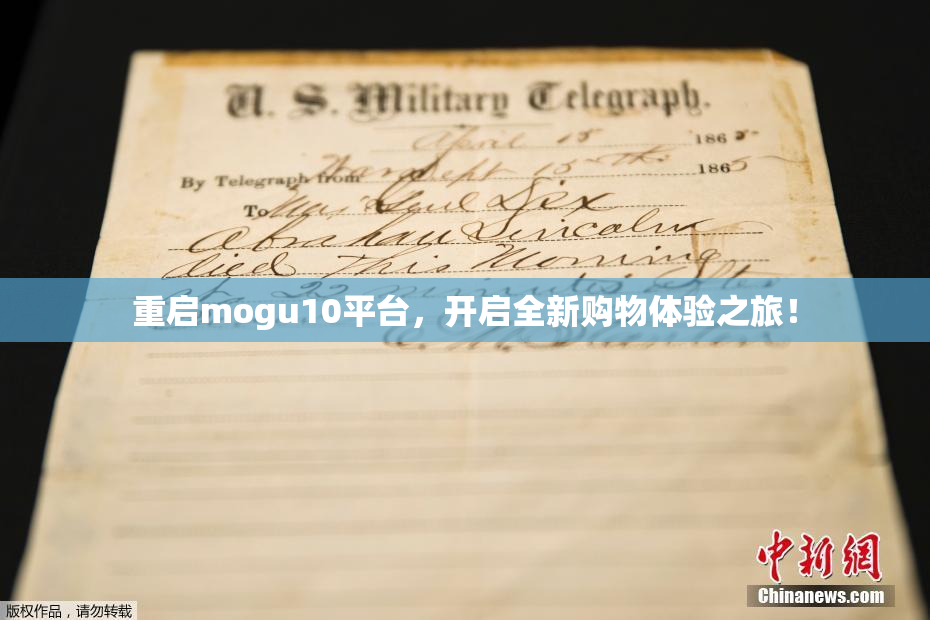 U. S. Military Telegraph.
April 15 1865
By Telegraph from War Dept 15 1865
To Maj Genl Dix
Abraham Lincoln
died This Morning
at 22 minutes after
重启mogu10平台，开启全新购物体验之旅！
E. M. Stanton
中新网
Chinanews.com
版权作品，请勿转载